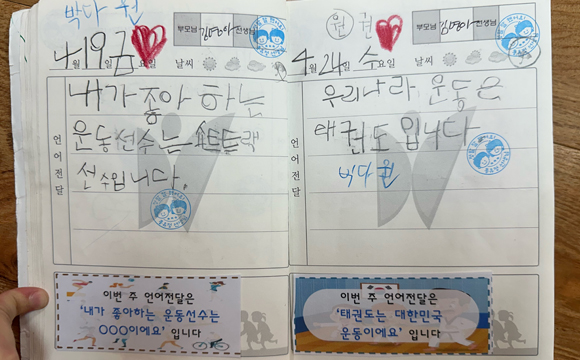 박다원
부모님 김명아 선생님
4월 19일 금요일 날씨
내가 좋아 하는
운동선수는 쇼트트랙
선수입니다.
언어전달
이번 주 언어전달은
'내가 좋아하는 운동선수는
OOO이에요' 입니다
원 권
부모님 김명아 선생님
4월 24일 수요일 날씨
우리나라 운동은
태권도 입니다
박다원
언어전달
이번 주 언어전달은
'태권도는 대한민국
운동이에요' 입니다